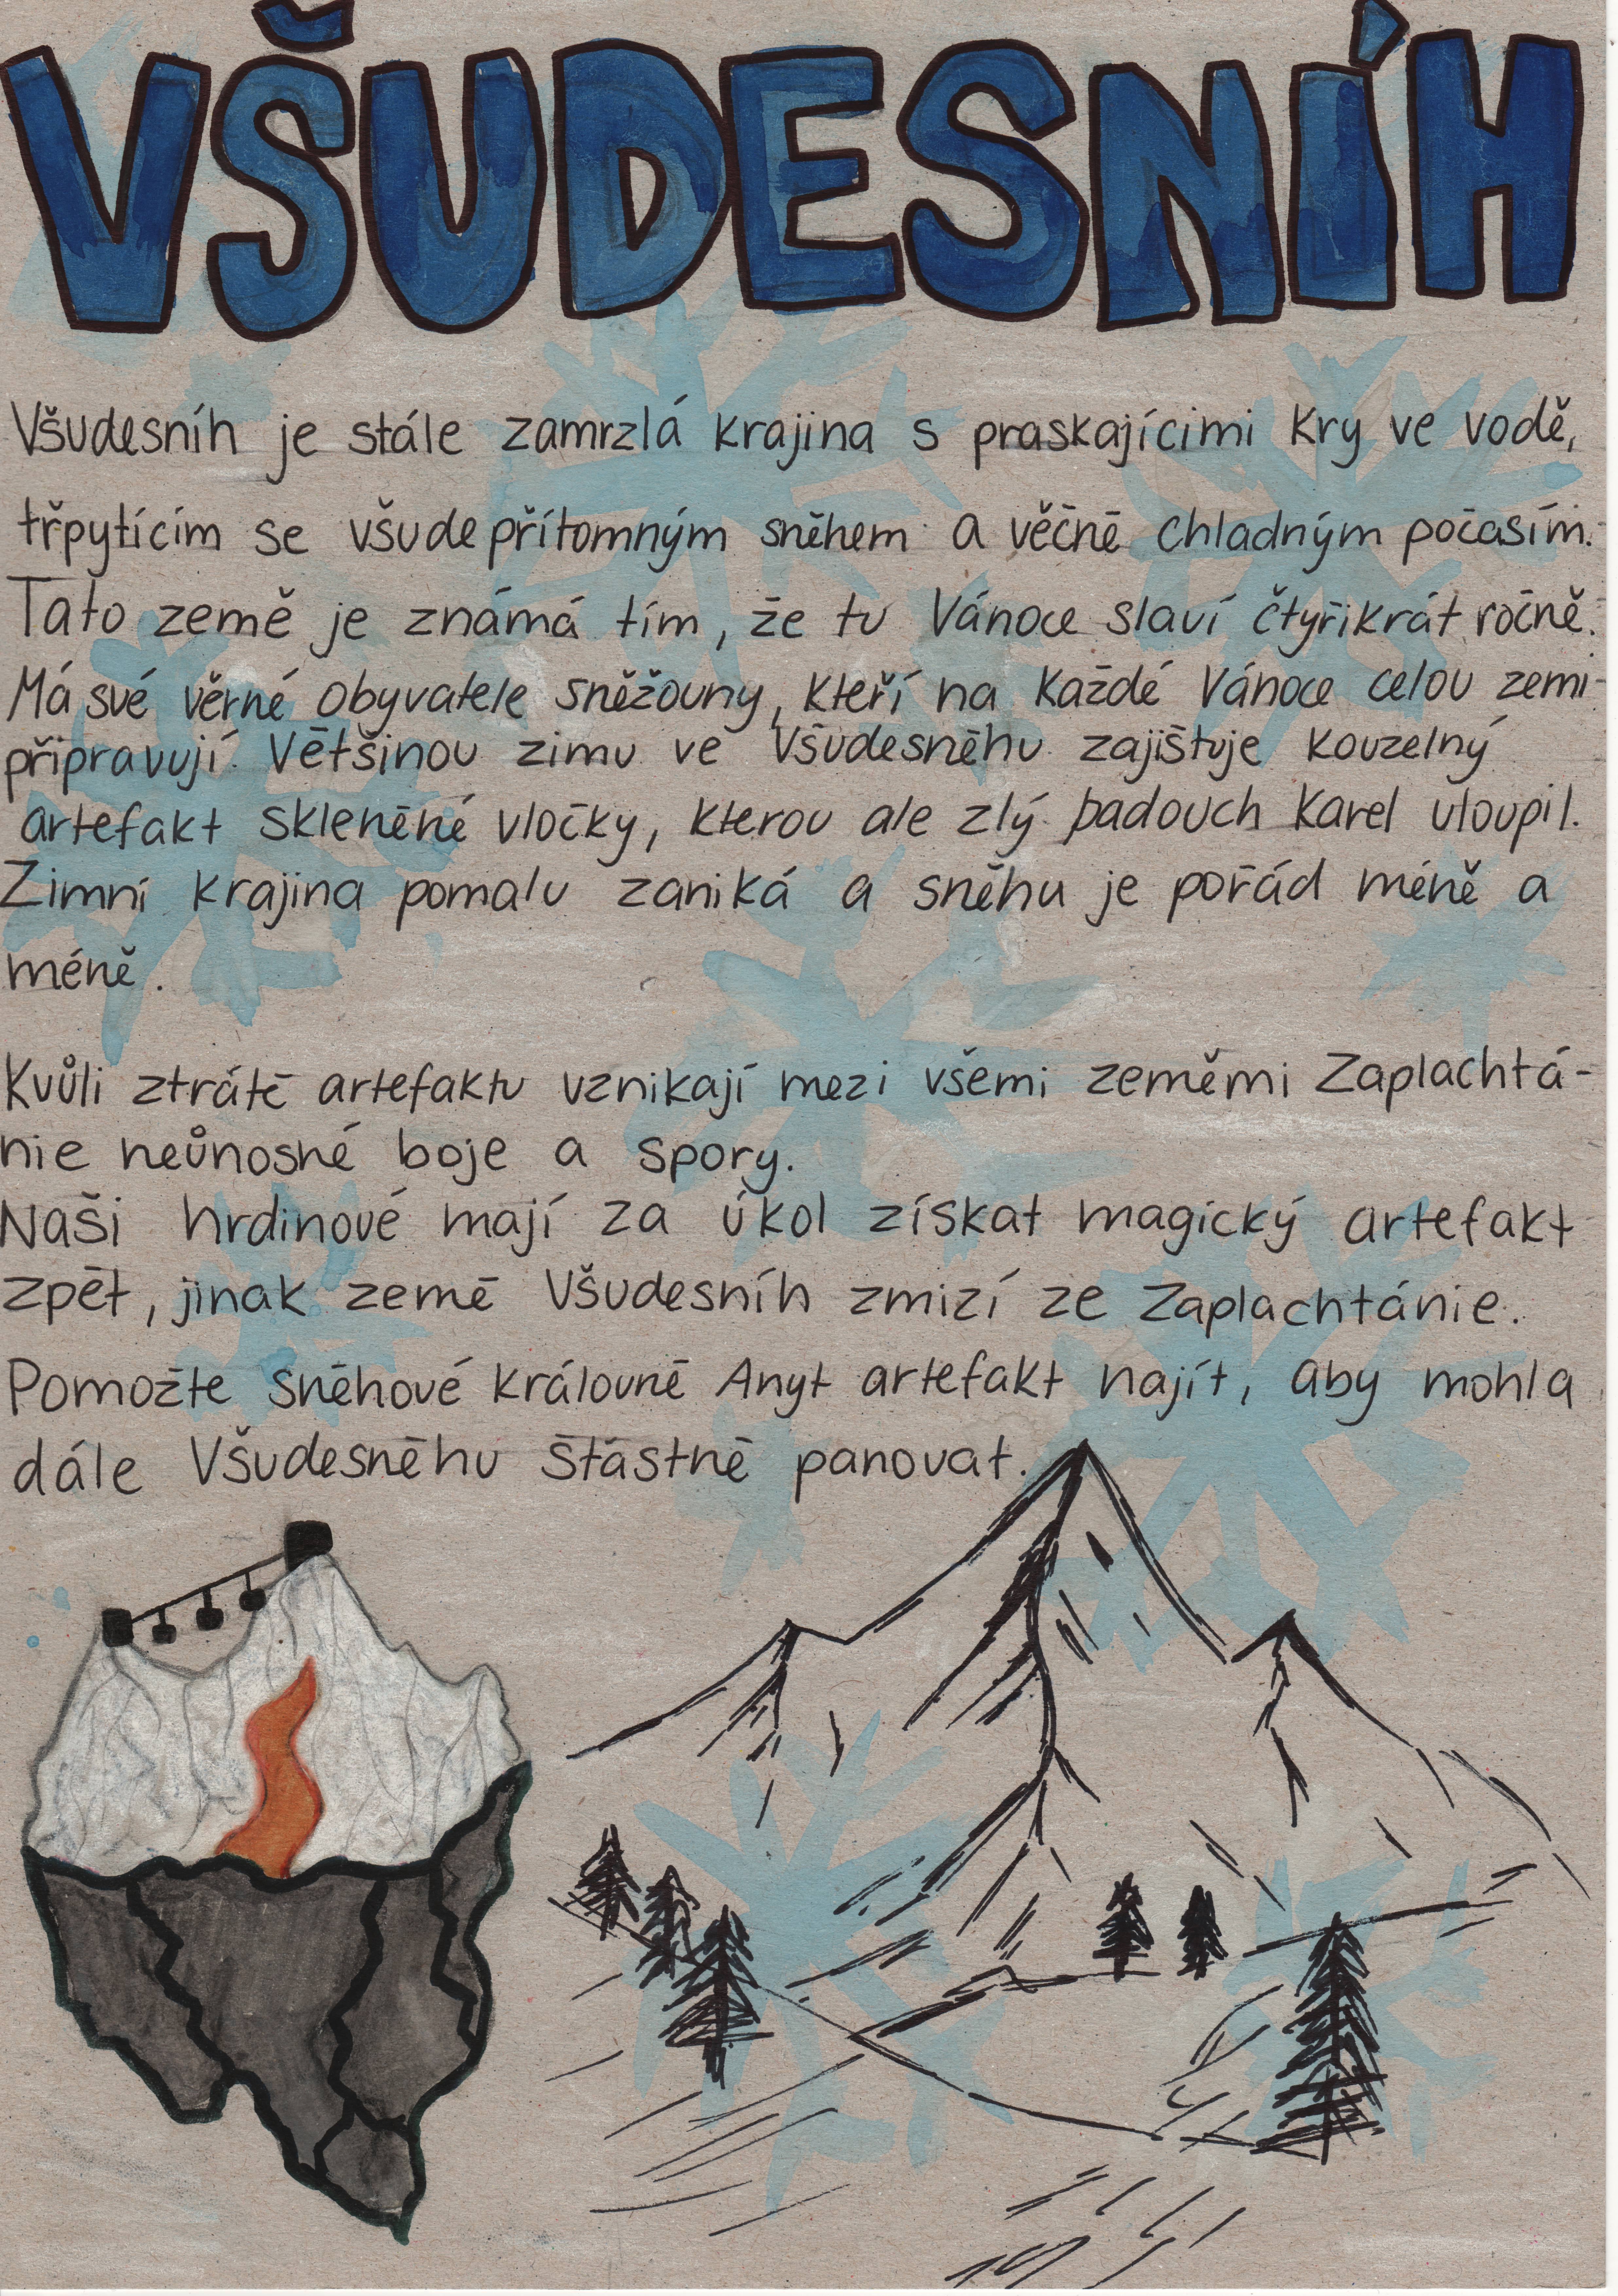 VŠUDESNÍH
Všudesníh je stále zamrzlá krajina s praskajícimi kry ve vodě,
třpytícím se všudepřítomným sněhem a věčně chladným počasím.
Tato země je známá tím, že tu Vánoce slaví čtyřikrát ročně.
Má své věrné obyvatele sněžouny, kteří na každé Vánoce celou zemi
připravují. Většinou zimu ve Všudesněhu zajištuje kouzelný
artefakt skleněné vločky, kterou ale zlý padouch Karel uloupil.
Zimní krajina pomalu zaniká a sněhu je pořád méně a
méně.
Kvůli ztrátě artefaktu vznikají mezi všemi zeměmi Zaplachtá-
nie neůnosné boje a spory.
Naši hrdinové mají za úkol získat magický artefakt
zpět, jinak země Všudesníh zmizí ze Zaplachtánie.
Pomožte Sněhové královně Anyt artefakt najít, aby mohla
dále Všudesněhu štástně panovat.